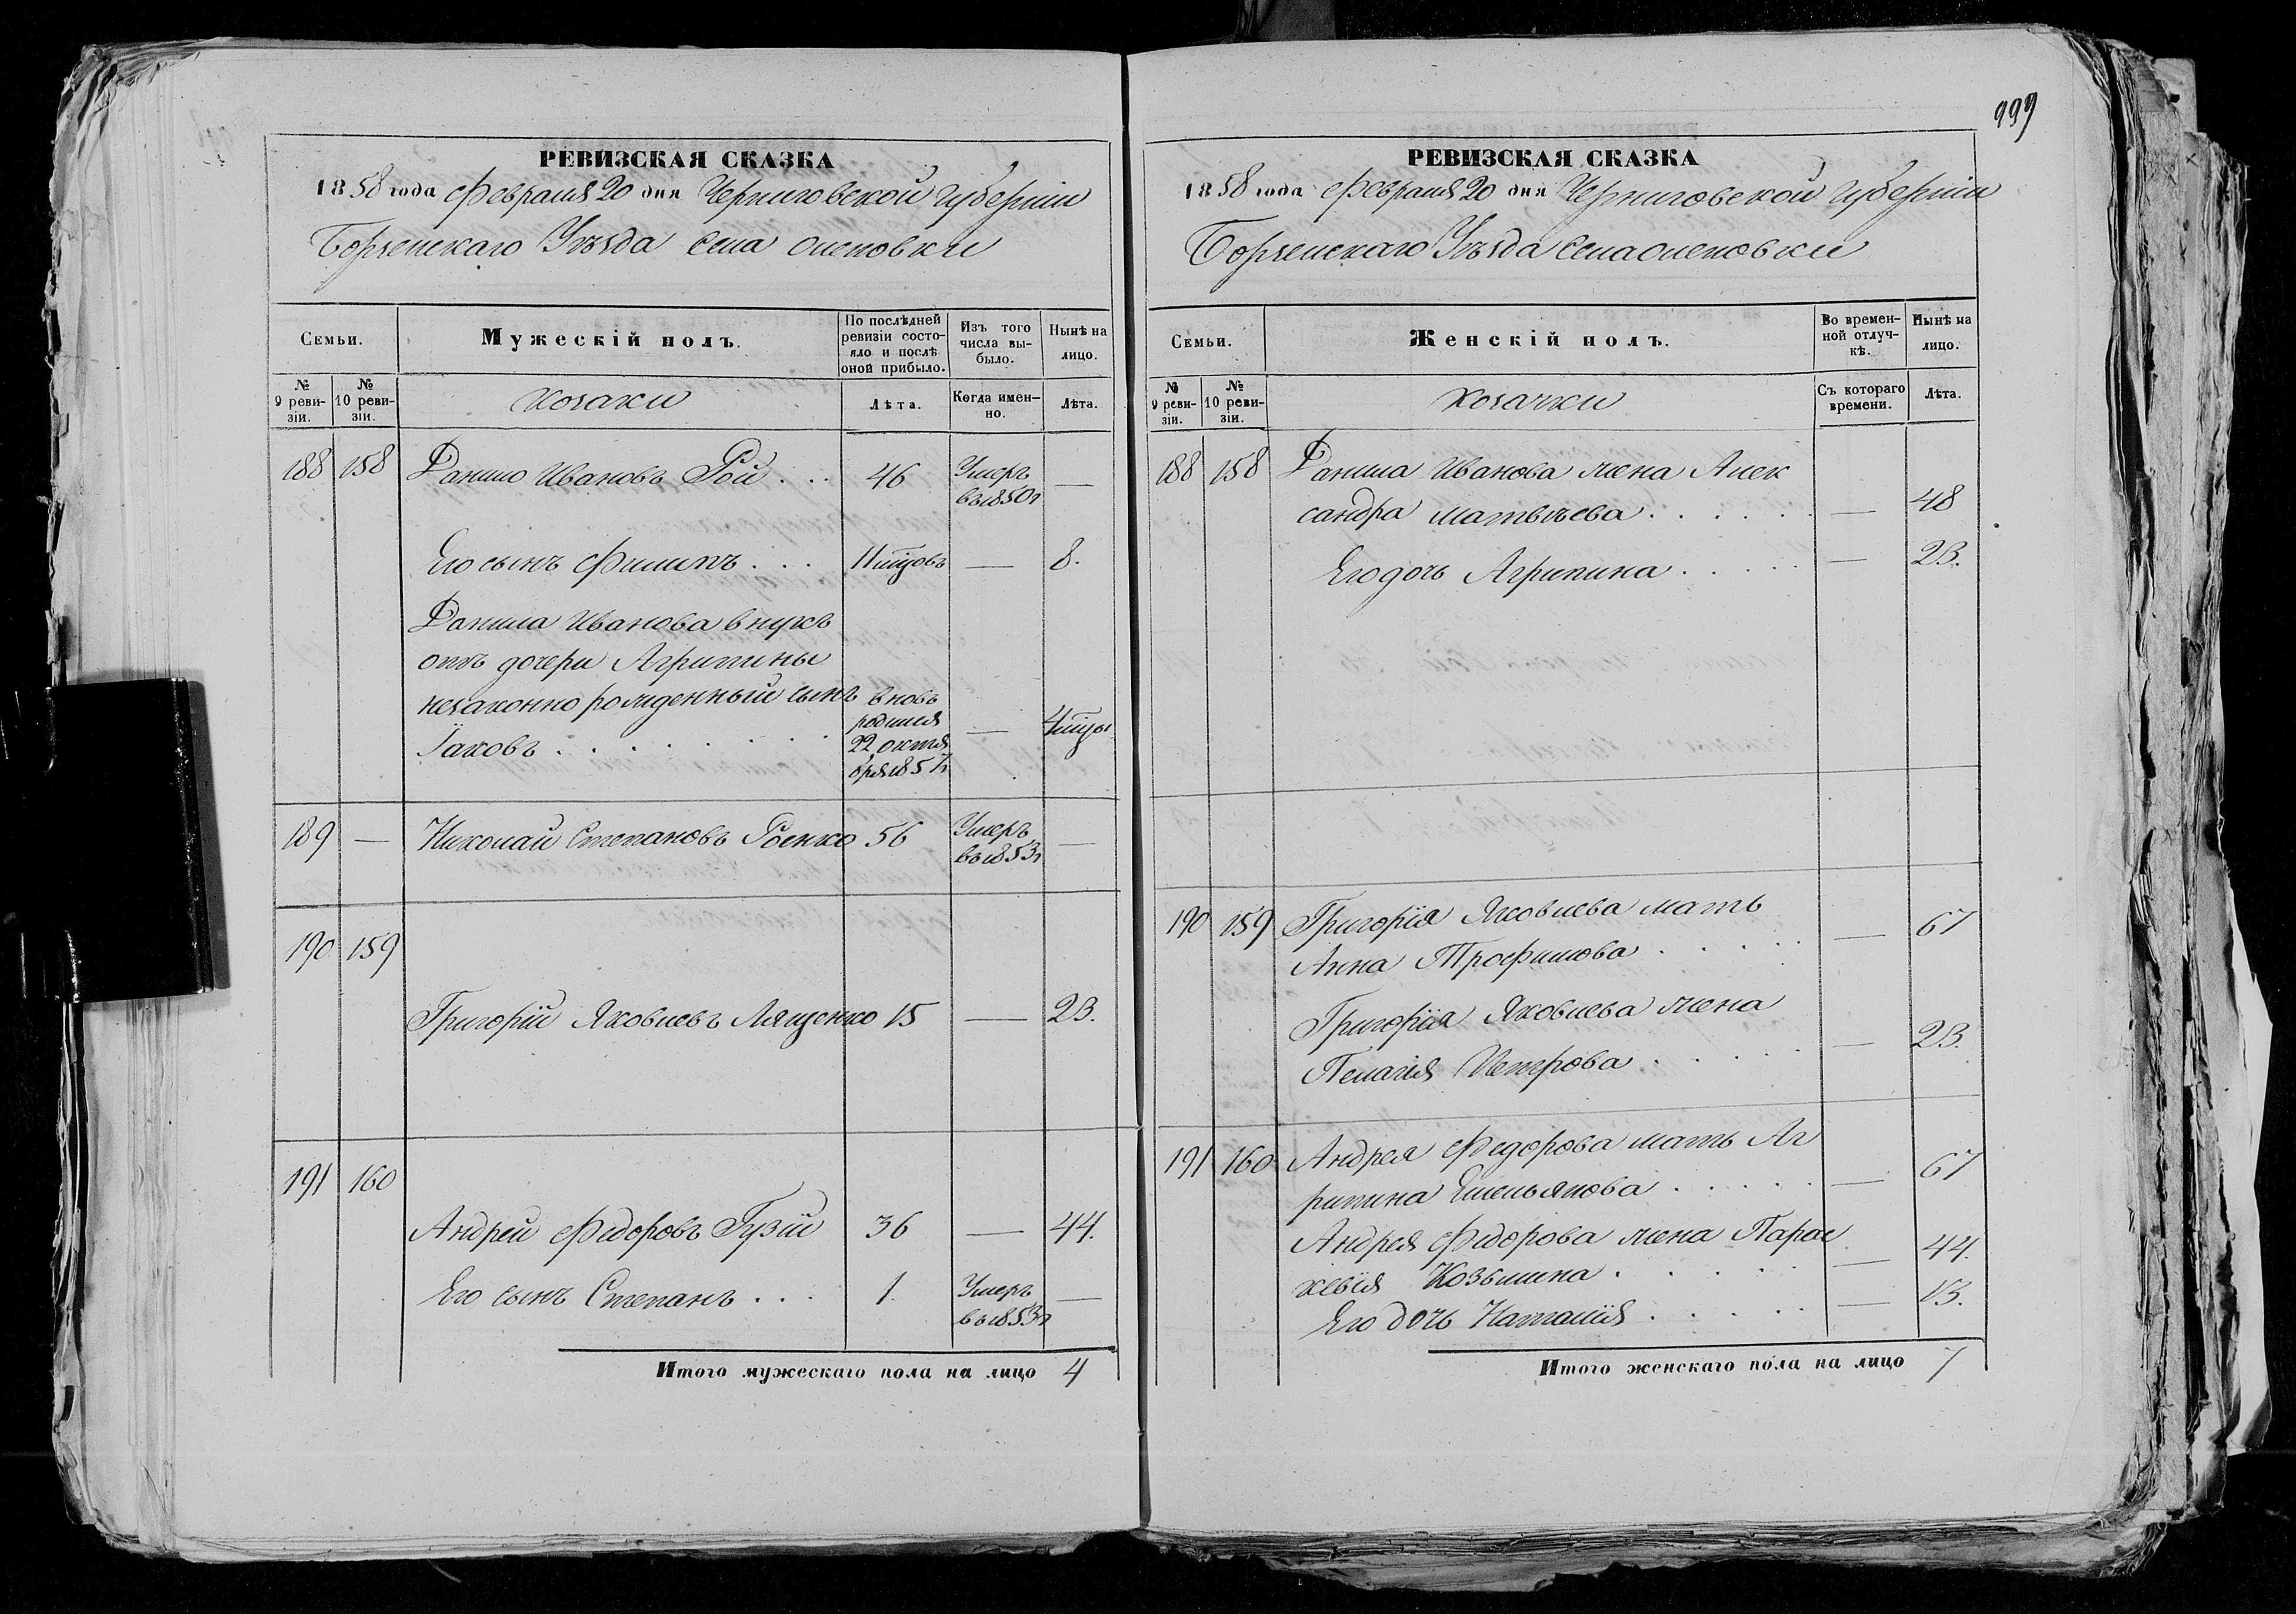 999
РЕВИЗСКАЯ СКАЗКА
1858 года Февраля 20 дня Черниговской Губерніи
Борзенскаго Уѣзда села Оленовки
Семьи.
Мужескій полъ.
По послѣдней ревизіи состояло и послѣ оной прибыло.
Изъ того числа выбыло.
Нынѣ на лицо.
№ 9 ревизіи.
№ 10 ревизіи.
Козаки
Лѣта.
Когда именно.
Лѣта.
188 158 Данило Ивановъ Рой . . . 46 Умеръ въ 1850г —
Его сынъ Филипъ . . . 11 мцовъ — 8.
Данила Иванова внукъ
отъ дочери Агрипины
незаконно рожденный сынъ
Іаковъ . . . . . . . . вновь родился 22 октября 1857г — 4 мцы
189 — Николай Степановъ Роенко 56 Умеръ въ 1853г —
190 159
Григорій Яковлевъ Лященко 15 — 23.
191 160
Андрей Федоровъ Гузій 36 — 44.
Его сынъ Степанъ . . . 1. Умеръ въ 1853г —
Итого мужескаго пола на лицо 4
РЕВИЗСКАЯ СКАЗКА
1858 года Февраля 20 дня Черниговской Губерніи
Борзенскаго Уѣзда села Оленовки
Семьи.
Женскій полъ.
Во временной отлучкѣ.
Нынѣ на лицо.
№ 9 ревизіи.
№ 10 ревизіи.
Козачки
Съ котораго времени.
Лѣта.
188 158 Данила Иванова жена Алек
сандра Матвѣева . . . . . . — 48
Его дочь Агрипина . . . . . — 23.
190 159 Григорія Яковлева мать
Анна Трофимова . . . . . — 67
Григорія Яковлева жена
Пелагія Петрова . . . . . — 23.
191 160 Андрея Федорова мать Аг
рипина Емельянова . . . . . — 67
Андрея Федорова жена Парас
кевія Козьмина . . . . . — 44.
Его дочь Наталія . . . . . — 13.
Итого женскаго пола на лицо 7